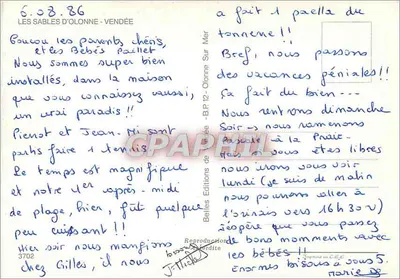 5.08.86
LES SABLES D'OLONNE - VENDÉE
Coucou les parents chéris,
et les Bébés Paillet
Nous sommes super bien
installés, dans la maison
que vous connaissez aussi,
un vrai paradis !!
Pierrot et Jean-Mi sont
partis faire 1 tennis.
Le temps est magnifique
et notre 1er après-midi
de plage, hier, fût quelque
peu cuisant !!
Hier soir nous mangions
chez Gilles, il nous
3702
Belles Editions de Vendée - B.P. 12 - Olonne Sur Mer
a fait 1 paella du
tonnerre !!
Bref, nous passons
des vacances géniales !!
Ça fait du bien...
Nous rentrons dimanche
Soir et nous ramenons
à la
si vous êtes libres
nous irons vous voir
lundi (je suis de matin
nous pourrons aller à
vers 16h30 )
j'espère que vous passez
de bons moments avec
les bébés !!
Enormes bisous à vous 5.
CPARAMA.com
Reproduction
interdite